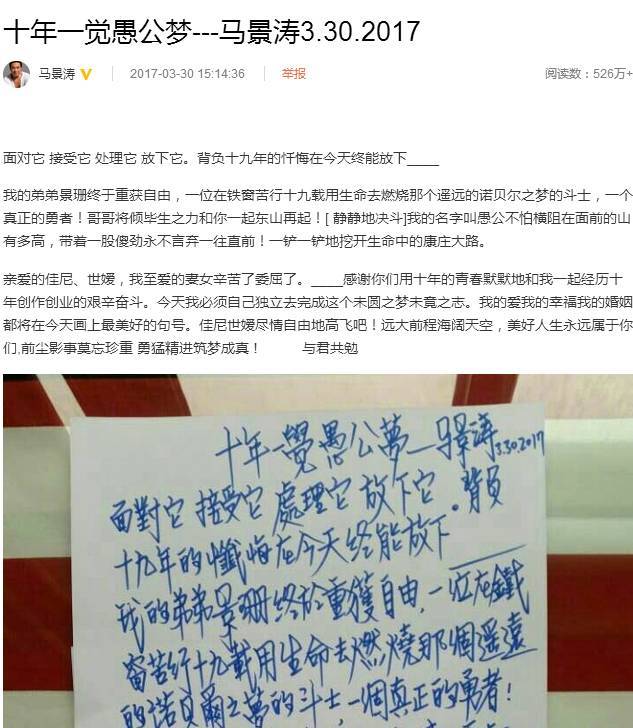 十年一觉愚公梦---马景涛3.30.2017
马景涛 2017-03-30 15:14:36 举报 阅读数：526万+
面对它 接受它 处理它 放下它。背负十九年的忏悔在今天终能放下____
我的弟弟景珊终于重获自由，一位在铁窗苦行十九载用生命去燃烧那个遥远的诺贝尔之梦的斗士，一个
真正的勇者！哥哥将倾毕生之力和你一起东山再起！[ 静静地决斗]我的名字叫愚公不怕横阻在面前的山
有多高，带着一股傻劲永不言弃一往直前！一铲一铲地挖开生命中的康庄大路。
亲爱的佳尼、世媛，我至爱的妻女辛苦了委屈了。____感谢你们用十年的青春默默地和我一起经历十
年创作创业的艰辛奋斗。今天我必须自己独立去完成这个未圆之梦未竟之志。我的爱我的幸福我的婚姻
都将在今天画上最美好的句号。佳尼世媛尽情自由地高飞吧！远大前程海阔天空，美好人生永远属于你
们.前尘影事莫忘珍重 勇猛精进筑梦成真！ 与君共勉
十年一覺愚公夢__馬景涛3.30.2017
面對它 接受它 處理它 放下它。背負
十九年的懺悔在今天终能放下____
我的弟弟景珊终於重獲自由，一位在鐵
窗苦行十九載用生命去燃燒那個遥遠
的诺貝爾之夢的斗士，一個真正的勇者！